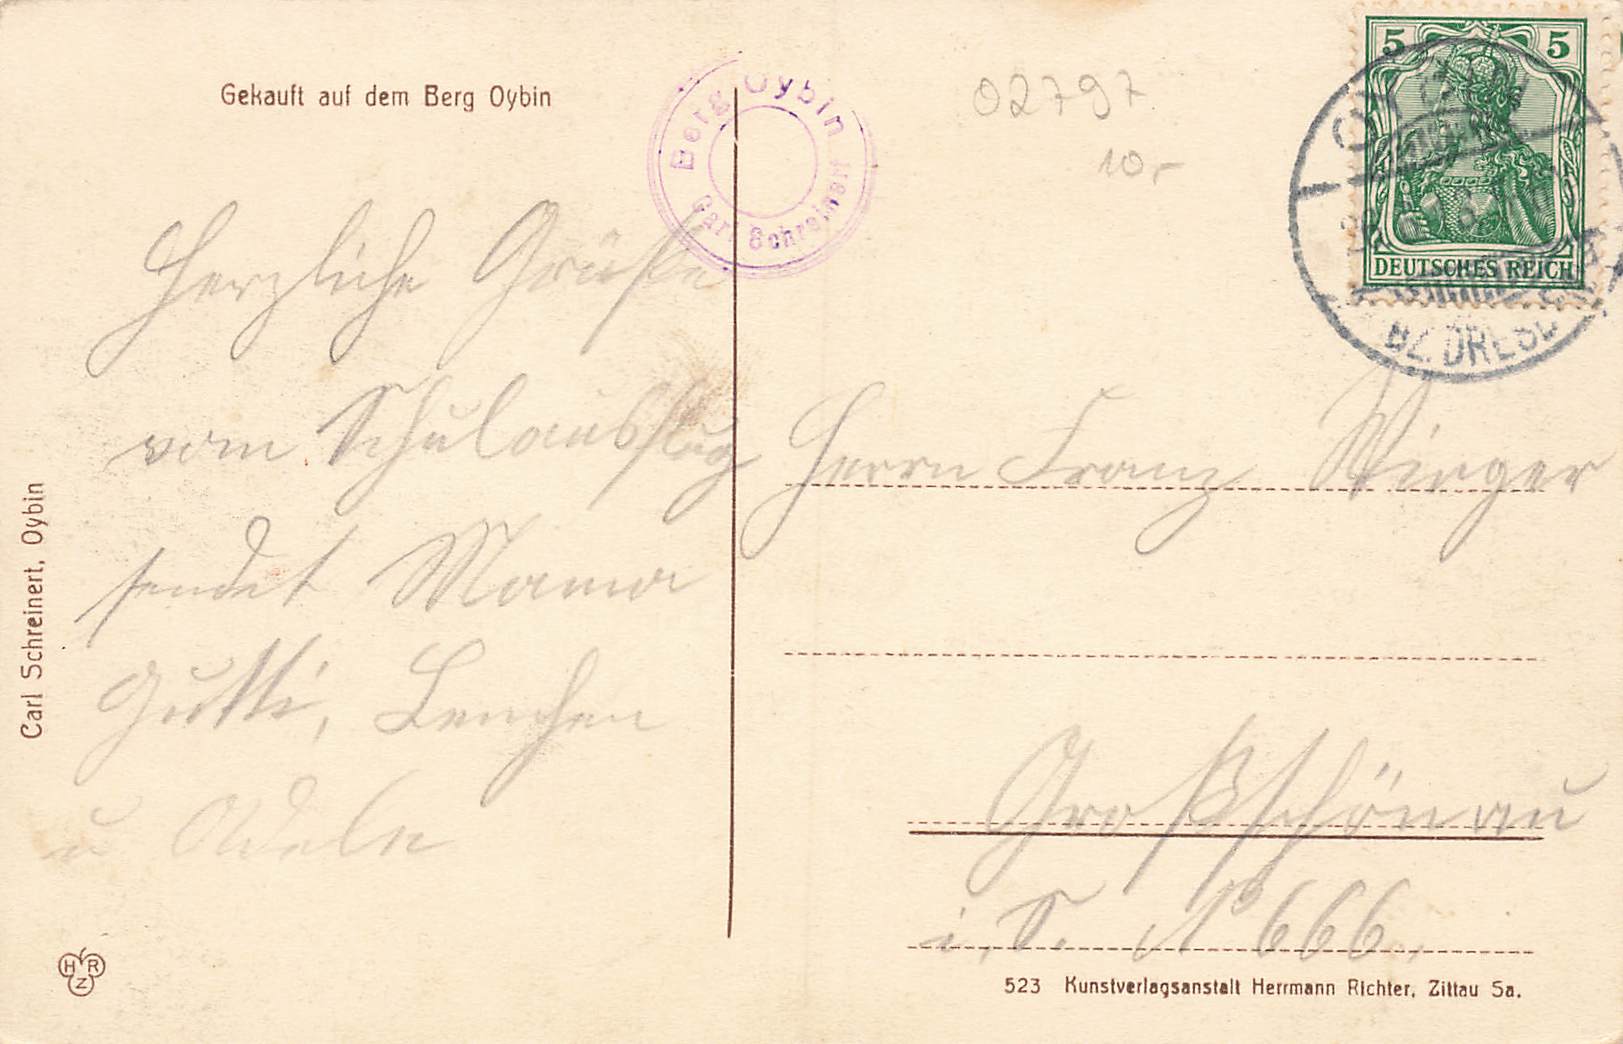 Gekauft auf dem Berg Oybin
Berg Oybin
Carl Schreinert
02797
10,-
5 5
DEUTSCHES REICH
BZ. DRESD
Herzliche Grüße
vom Schulausflug
sendet Mama
Gutti, Lenchen
u Adele
Herrn Franz
Großschönau
i. S. No 666.
Carl Schreinert, Oybin
H R Z
523 Kunstverlagsanstalt Herrmann Richter, Zittau Sa.